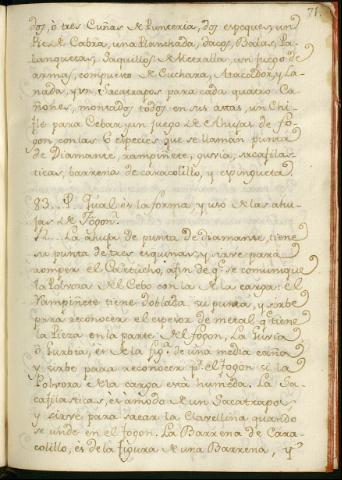 71.
dos, ò tres Cuñas de Punteria, dos espeques, un
Pie de Cabra, una Planchada, tacos, Balas, Pa-
lanquetas, Saquillos de Metralla, un juego de
armas, compuesto de Cuchara, Atacador, y La-
nada, y un Sacatrapos para cada quatro Ca-
ñones, montados todos en sus
fle para Cebar, un juego de Abujas de fo-
gon, con las 6 especies que se llamán punta
de Diamante, rampiñete, guvia, sacafilas-
ticas, barrena de caracolillo, y espingueta.
83.. P. Qual es la forma y uso de las abu-
jas de Fogon?
R... La abuja de punta de diamante, tiene
su punta de tres esquinas, y sirve para
romper el Cartucho, afin de qᵉ se comunique
la Polvora del Cebo con la de la carga: el
Rampiñete tiene doblada su punta, y sirbe
para reconocer el espesor de metal qᵉ tiene
la Pieza en la parte del fogon, La Guvia
ò Gurbia, es de la figᵃ de una media caña
y sirbe para reconocer pʳ el fogon si la
Polvora de la carga està humeda. La Sa-
cafilasticas, es à modo de un Sacatrapos
y sirve para sacar la Clavellina quando
se unde en el fogon. La Barrena de Cara-
colillo, es de la figura de una Barrena, y